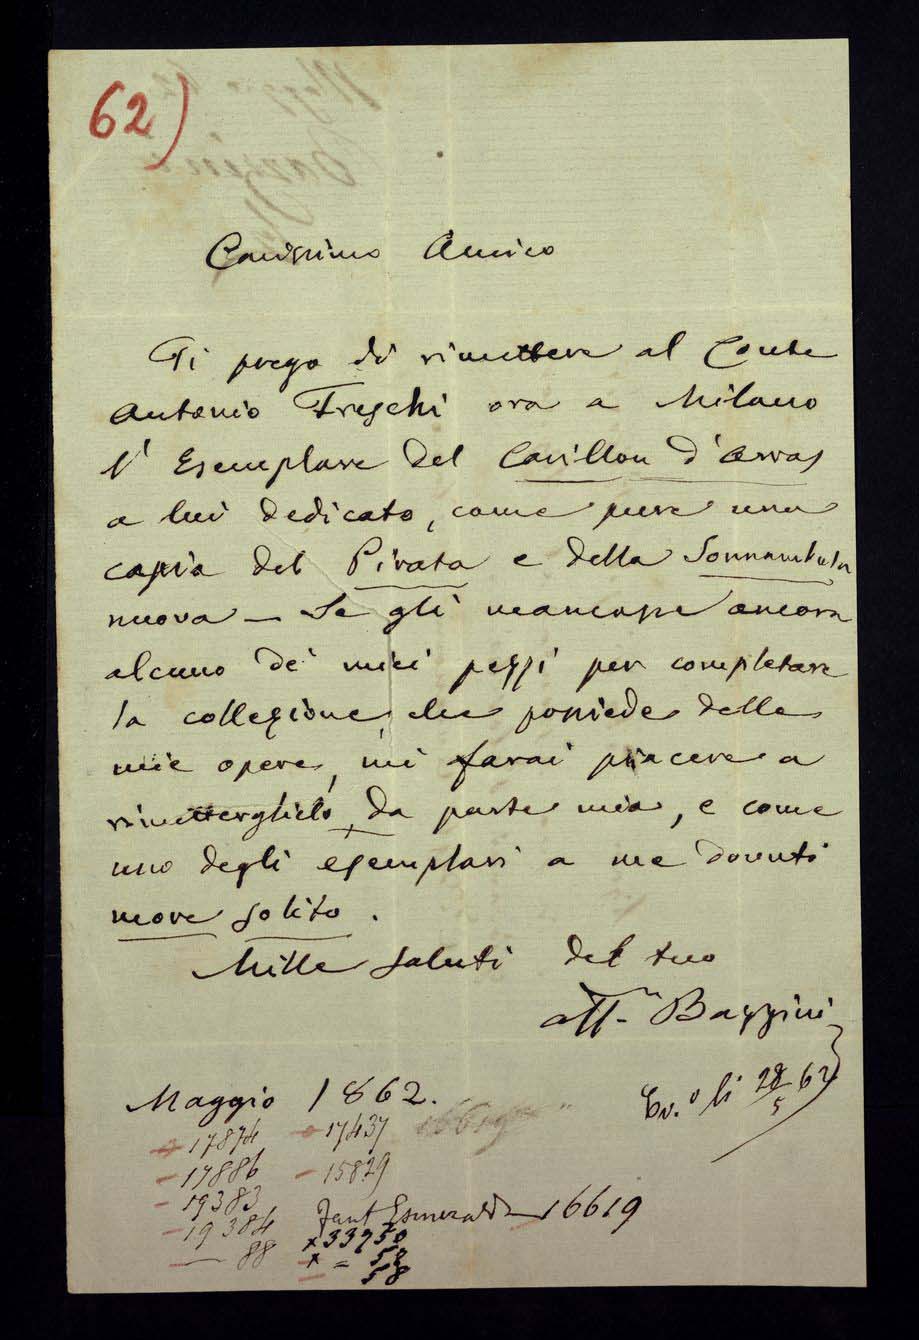 62)
Carissimo Amico
Ti prego di rimettere al Conte
Antonio Freschi ora a Milano
l'Esemplare del Carillon d'Arras
a lui dedicato, come pure una
copia del Pirata e della Sonnambula
nuova — Se gli mancasse ancora
alcuno de' miei pezzi per completare
la collezione che possiede delle
mie opere, mi farai piacere a
rimetterglielo, da parte mia, e come
uno degli esemplari a me dovuti
more solito.
Mille saluti del tuo
aff. Bazzini
Maggio 1862.
Ev.° li 28/5 62
17874 17437 16619
17886 15829
19383
19384 Fant Esmeralda — 16619
— 88 x 33950
x = 52
58